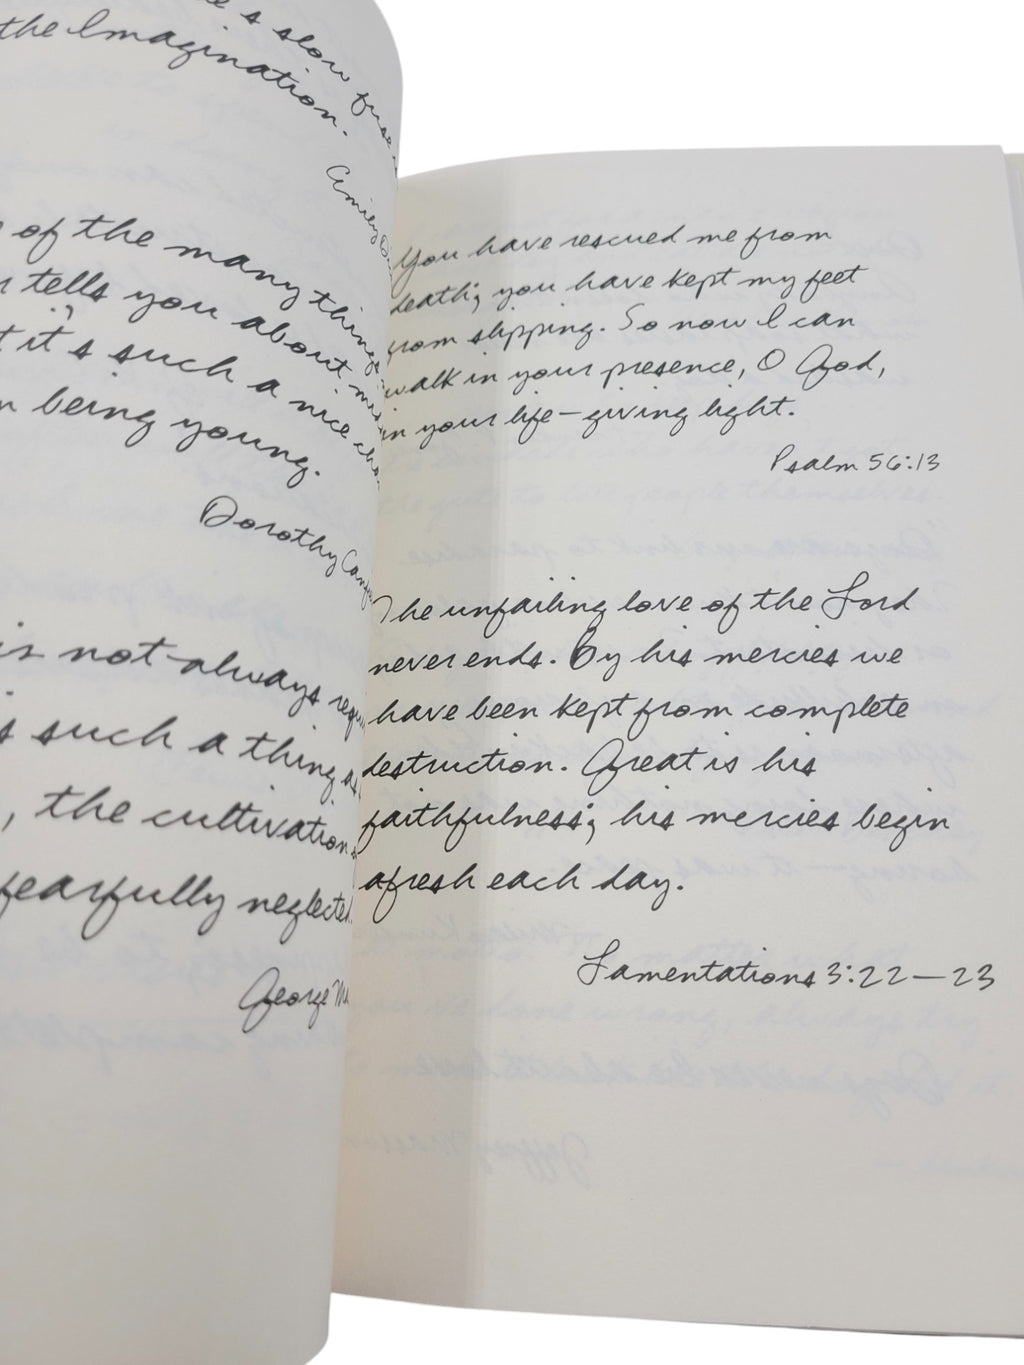 's slow fuse
the Imagination.
Emily
of the many things
tells you about
it's such a nice
being young.
Dorothy
is not always
such a thing as
, the cultivation
fearfully neglected
George
You have rescued me from
death; you have kept my feet
from slipping. So now I can
walk in your presence, O God,
in your life-giving light.
Psalm 56:13
The unfailing love of the Lord
never ends. By his mercies we
have been kept from complete
destruction. Great is his
faithfulness; his mercies begin
afresh each day.
Lamentations 3:22-23